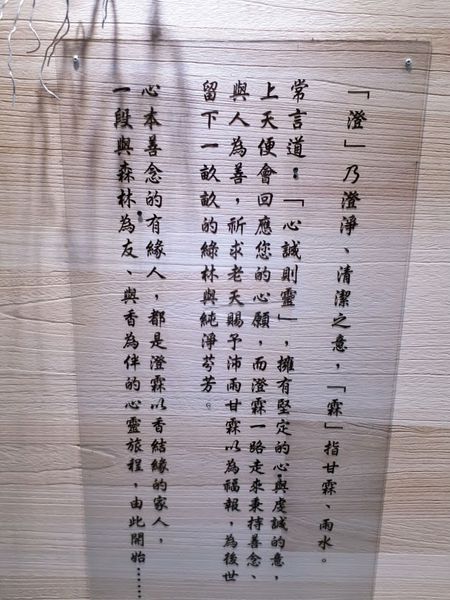 「澄」乃澄淨、清潔之意，「霖」指甘霖、雨水。
常言道：「心誠則靈」，擁有堅定的心與虔誠的意，
上天便會回應您的心願，而澄霖一路走來秉持善念、
與人為善，祈求老天賜予沛雨甘霖以為福報，為後世
留下一畝畝的綠林與純淨芬芳。
心本善念的有緣人，都是澄霖以香結緣的家人，
一段與森林為友、與香為伴的心靈旅程，由此開始……